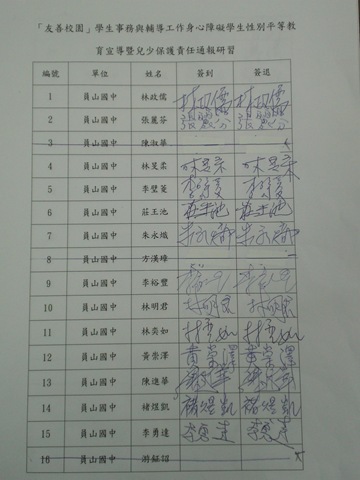 「友善校園」學生事務與輔導工作身心障礙學生性別平等教
育宣導暨兒少保護責任通報研習
編號 單位 姓名 簽到 簽退
1 員山國中 林政儒 林政儒 林政儒
2 員山國中 張麗芬 張麗芬 張麗芬
3 員山國中 陳淑華
4 員山國中 林旻柔 林旻柔 林旻柔
5 員山國中 李璧菱 李璧菱 李璧菱
6 員山國中 莊王池 莊王池 莊王池
7 員山國中 朱永熾 朱永熾 朱永熾
8 員山國中 方漢璋
9 員山國中 李裕豐
10 員山國中 林明君 林明君 林明君
11 員山國中 林奕如 林奕如 林奕如
12 員山國中 黃崇澤 黃崇澤 黃崇澤
13 員山國中 陳進華 陳進華
14 員山國中 褚煜凱 褚煜凱 褚煜凱
15 員山國中 李勇達 李勇達 李勇達
16 員山國中 游鉦詔